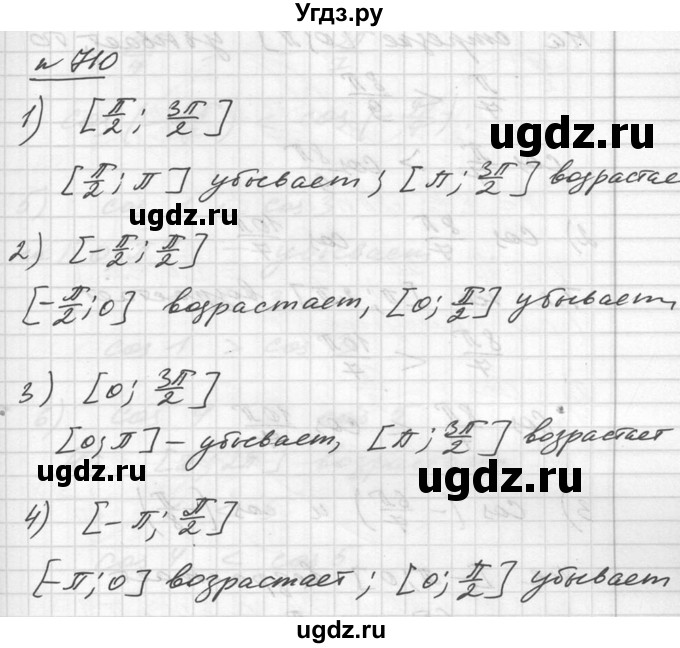 Угдз.ру
п 710
1) [π/2; 3π/2]
ugdz.ru
[π/2; π] убывает; [π; 3π/2] возрастае
ugdz.ru
2) [-π/2; π/2]
[-π/2; 0] возрастает, [0; π/2] убывает,
3) [0; 3π/2]
[0; π] – убывает, [π; 3π/2] возрастает
ugdz.ru ugdz.ru
4) [-π; π/2]
[-π; 0] возрастает; [0; π/2] убывает
ugdz.ru